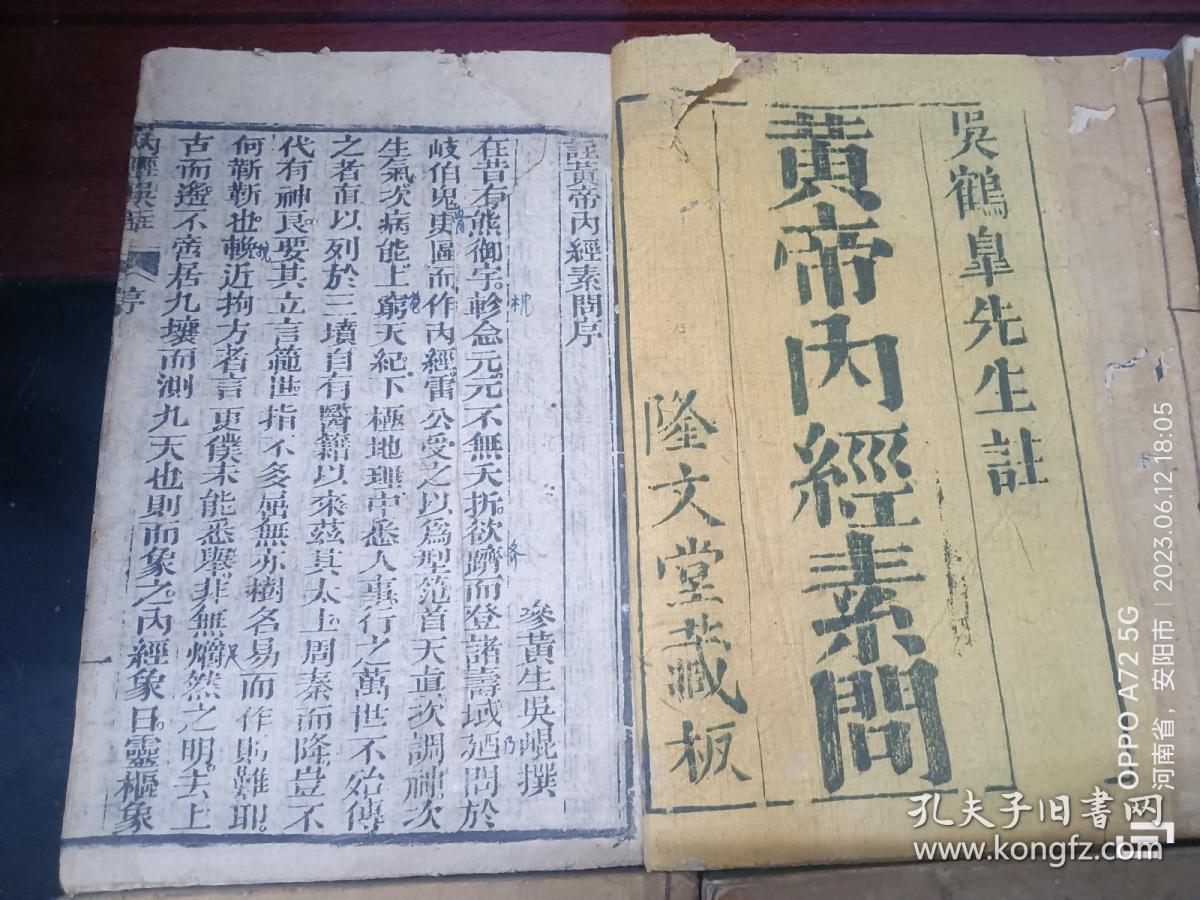 吳鶴皐先生註
黃帝內經素問
隆文堂藏板
註黃帝內經素問序
參黃生吳崐撰
在昔有熊御宇軫念元元不無夭折欲躋而登諸壽域廼問於
岐伯鬼臾區而作內經雷公受之以爲型范首天真次調神次
生氣次病能上窮天紀下極地理中悉人事行之萬世不殆傳
之者直以列於三墳自有醫籍以來茲其太上周秦而降豈不
代有神良要其立言範世指不多屈無亦樹名易而作則難耶
何靳靳也輓近拘方者言更僕未能悉舉非無爝然之明去上
古而遙不啻居九壤而測九天也則而象之內經象日靈樞象
內經吳註
序
一
孔夫子旧书网
www.kongfz.com
OPPO A72 5G
河南省，安阳市 | 2023.06.12 18:05